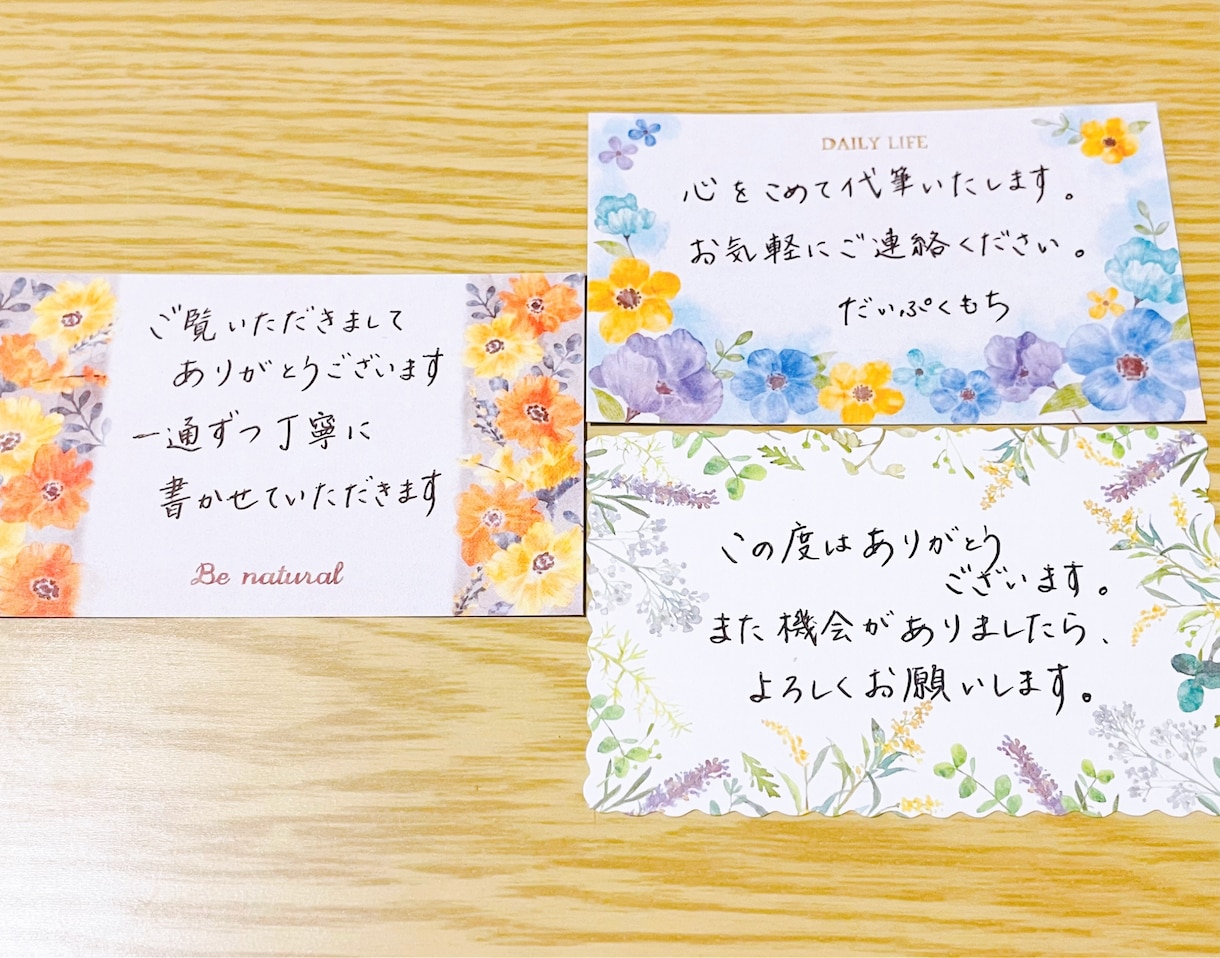 ご覧いただきまして
ありがとうございます
一通ずつ丁寧に
書かせていただきます
Be natural
DAILY LIFE
心をこめて代筆いたします。
お気軽にご連絡ください。
だいぷくもち
この度はありがとう
ございます。
また機会がありましたら、
よろしくお願いします。